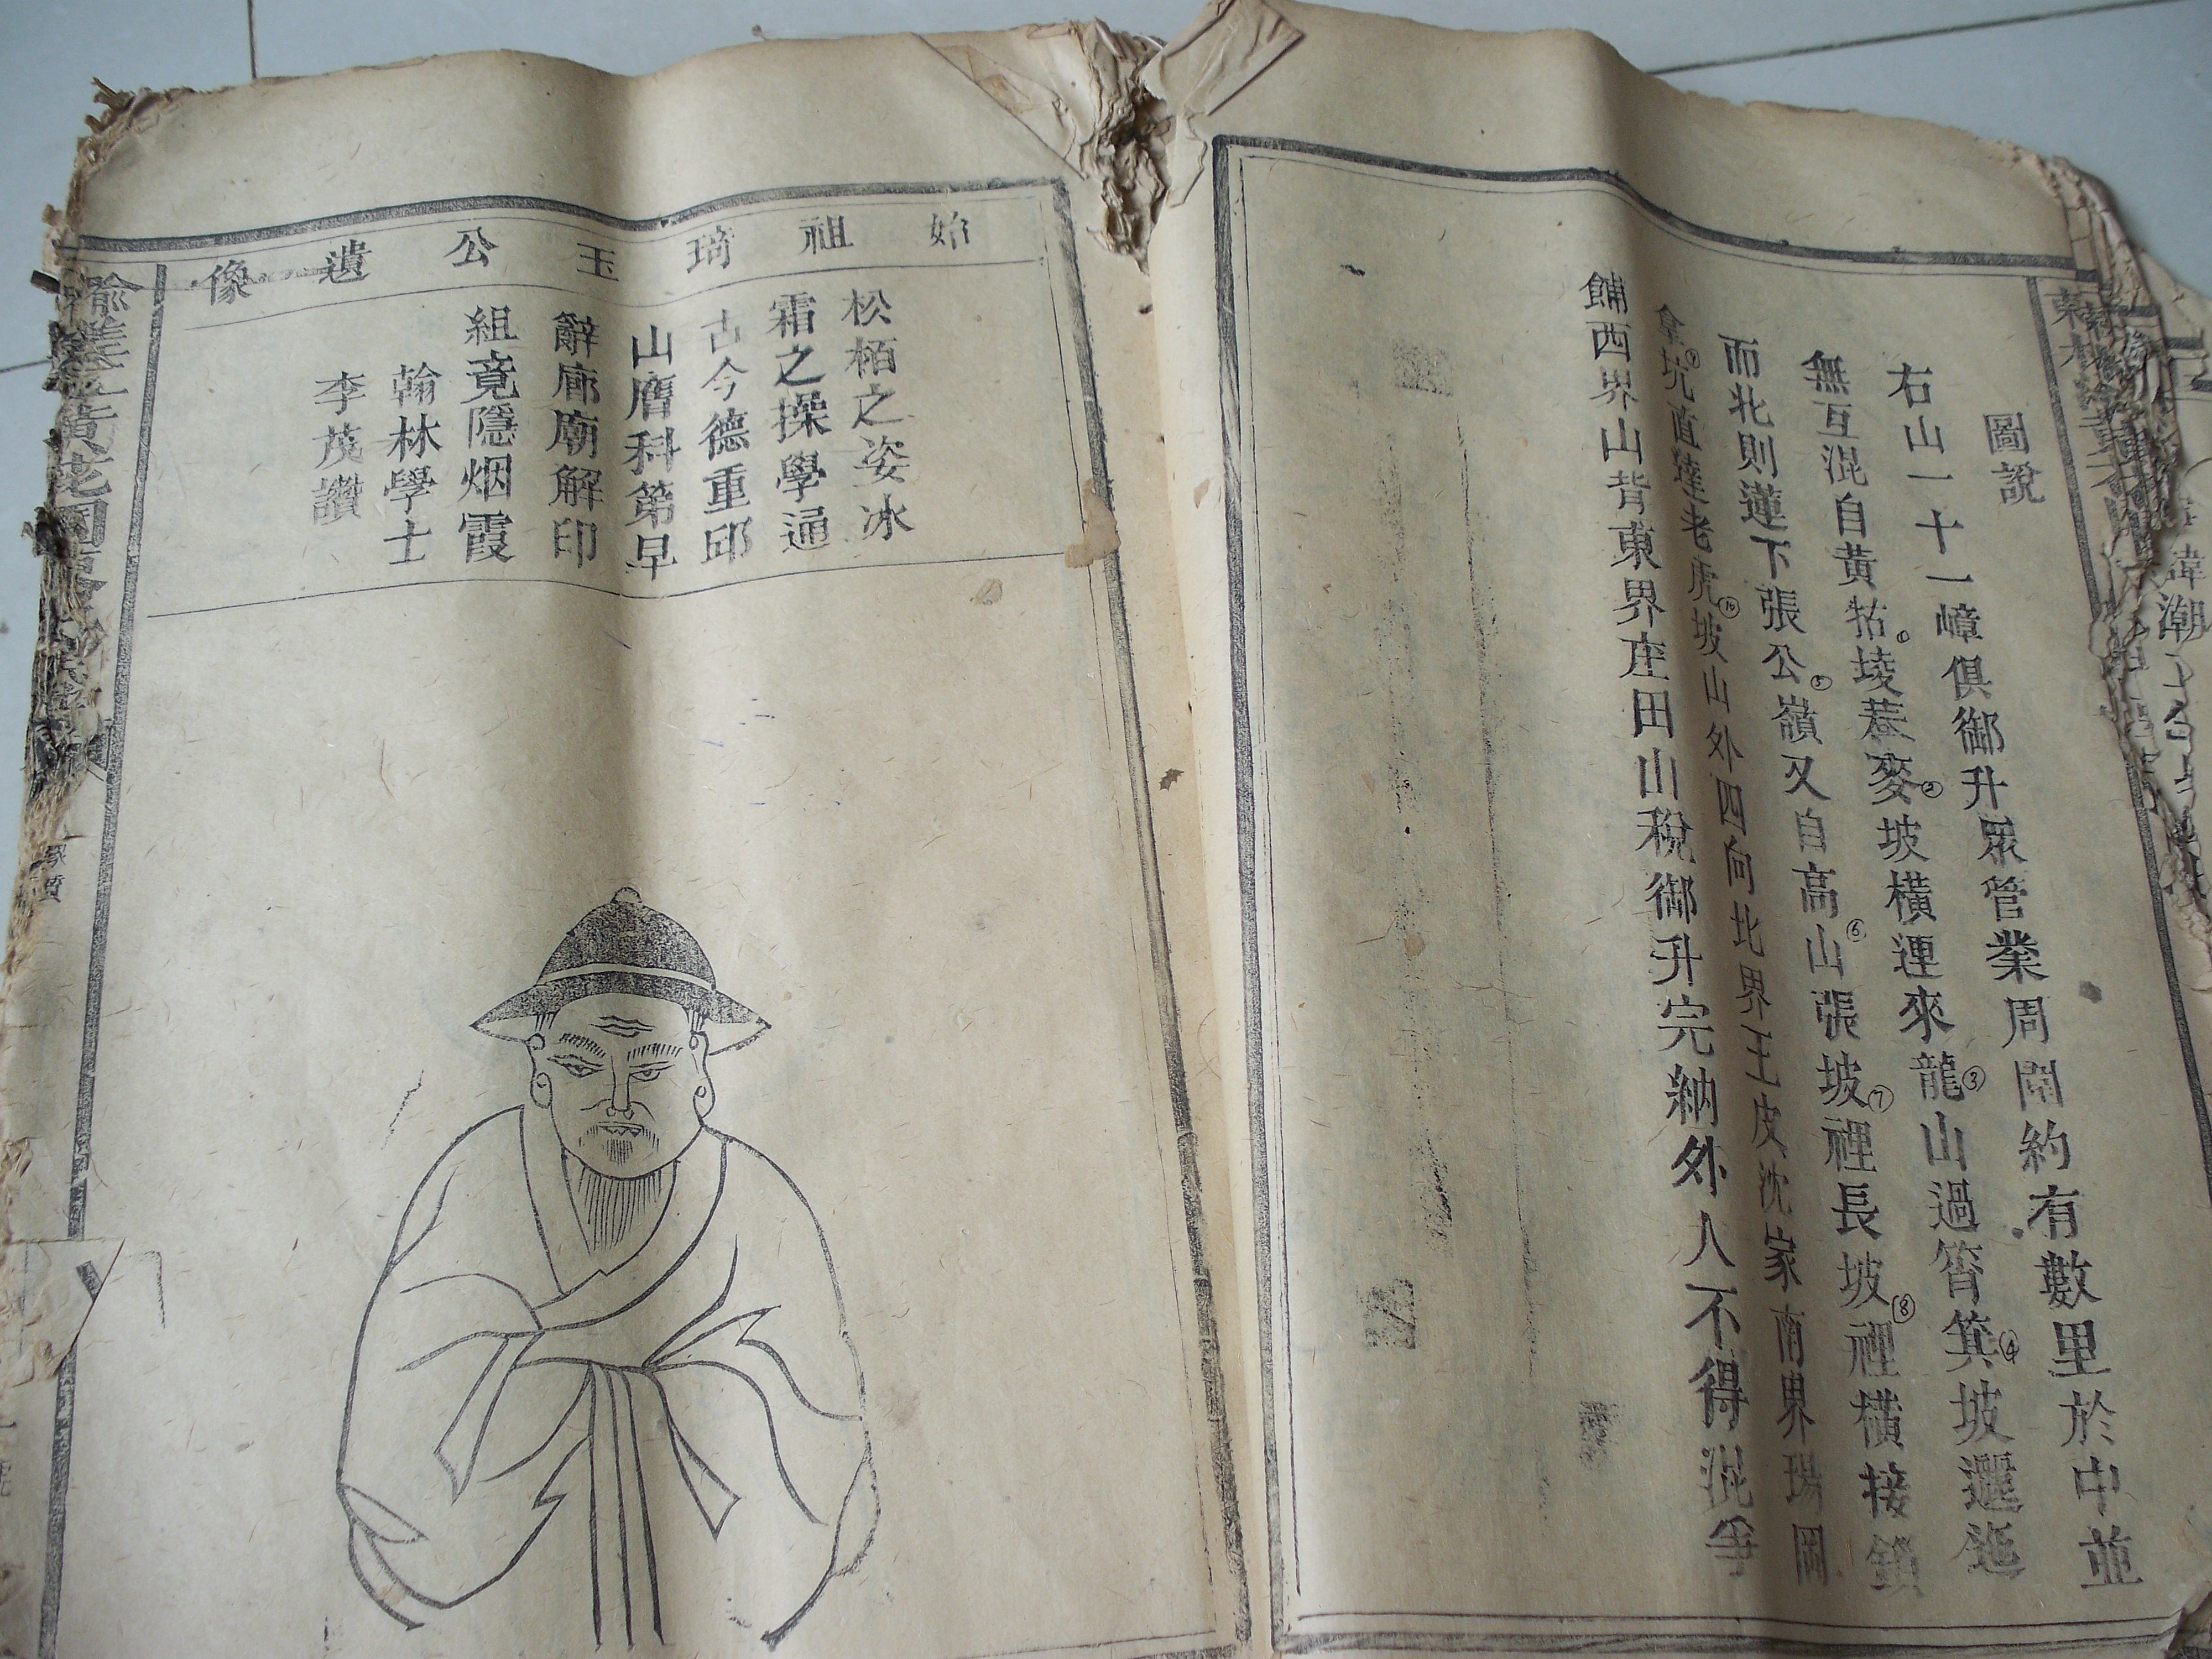 圖說
右山一十一嶂俱御升眾管業周圍約有數里於中並
無互混自黄牯堎蕋麥坡橫運來龍山過筲箕坡邐迤
而北則蓮下張公嶺又自高山張坡裡長坡裡横接鎖
坑直達老虎坡山外四向北界王皮沈家南界瑒岡
餔西界山背東界座田山稅御升完納外人不得混爭
⑥ ② ③ ④
⑤ ⑥ ⑦ ⑧
⑨ ⑩
始祖琦玉公遺像
松栢之姿冰
霜之操學通
古今德重邱
山膺科第早
辭廊廟解印
組竟隱烟霞
翰林學士
李茂讚